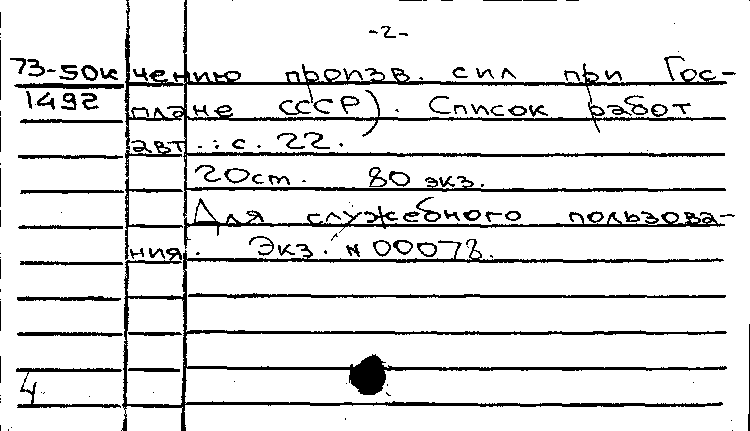 -2-
73-50к чению произв. сил при Гос-
1492 плане СССР). Список работ
авт.: с. 22.
20ст. 80 экз.
Для служебного пользова-
ния. Экз. № 00078.
4